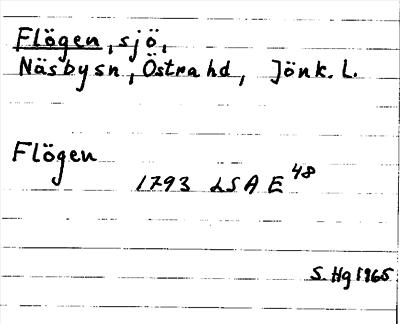 Flögen, sjö,
Näsbysn, Östra hd, Jönk. L.
Flögen
1793 LSA E 48
S. Hg 1965